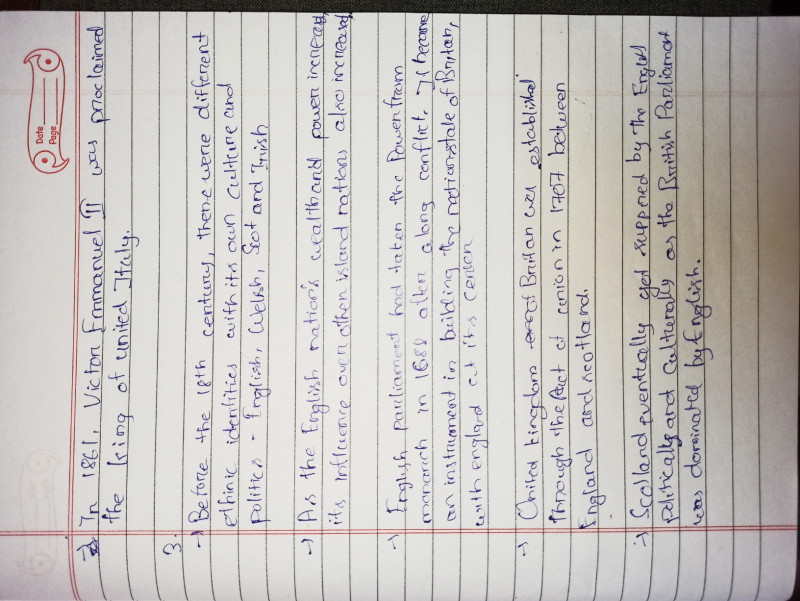 Date
Page
→ In 1861, Victor Emmanuel II was proclaimed
the king of united Italy.
3.
→ Before the 18th century, there were different
ethinic identities with its own culture and
politics - English, Welsh, Scot and Irish
→ As the English nation's wealth and power increased,
its influence over other island nations also increased
→ English parliament had taken the Power from
monarch in 1688 after a long conflict, It became
an instrument in building the nation state of Britain,
with england at its center
→ United kingdom of Britian was established
through the Act of union in 1707 between
England and scotland.
→ Scotland eventually got suppresed by the English
politically and culturally as the British Parliament
was dominated by English.